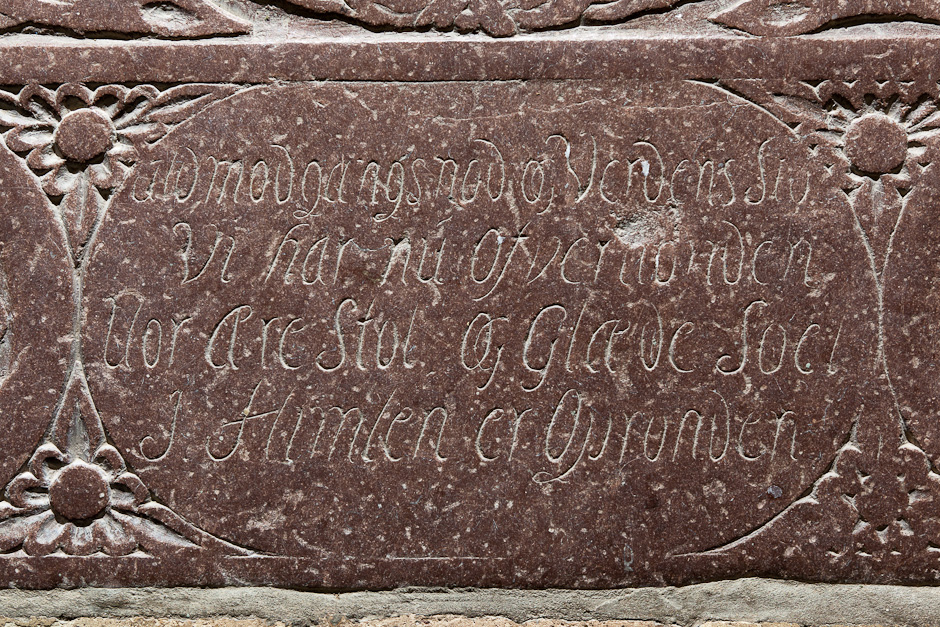 modgangs nød og Verdens
Vi har nú Ofvervonden
Vor Ære Stol og Glæde Soel
I Himlen er Oprunden